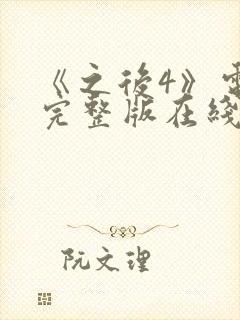 《之後4》電
完整版在綫
阮文理